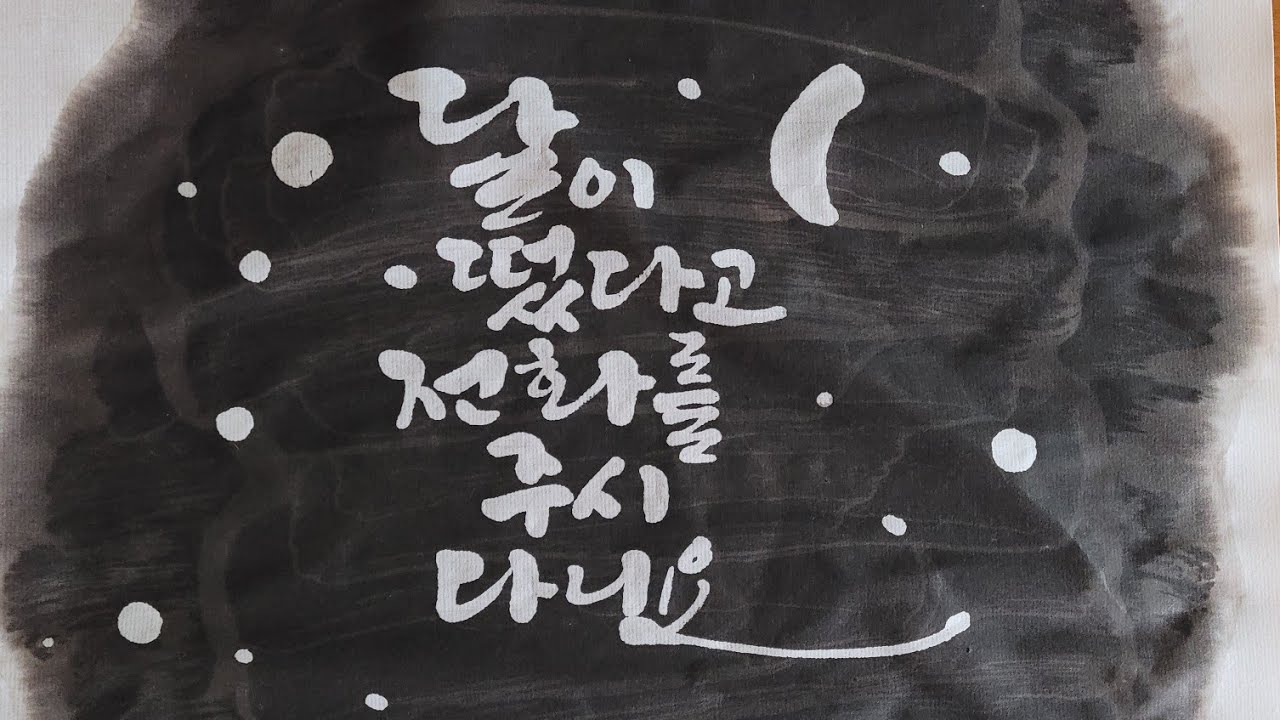 달이
떴다고
전화를
주시
다니요